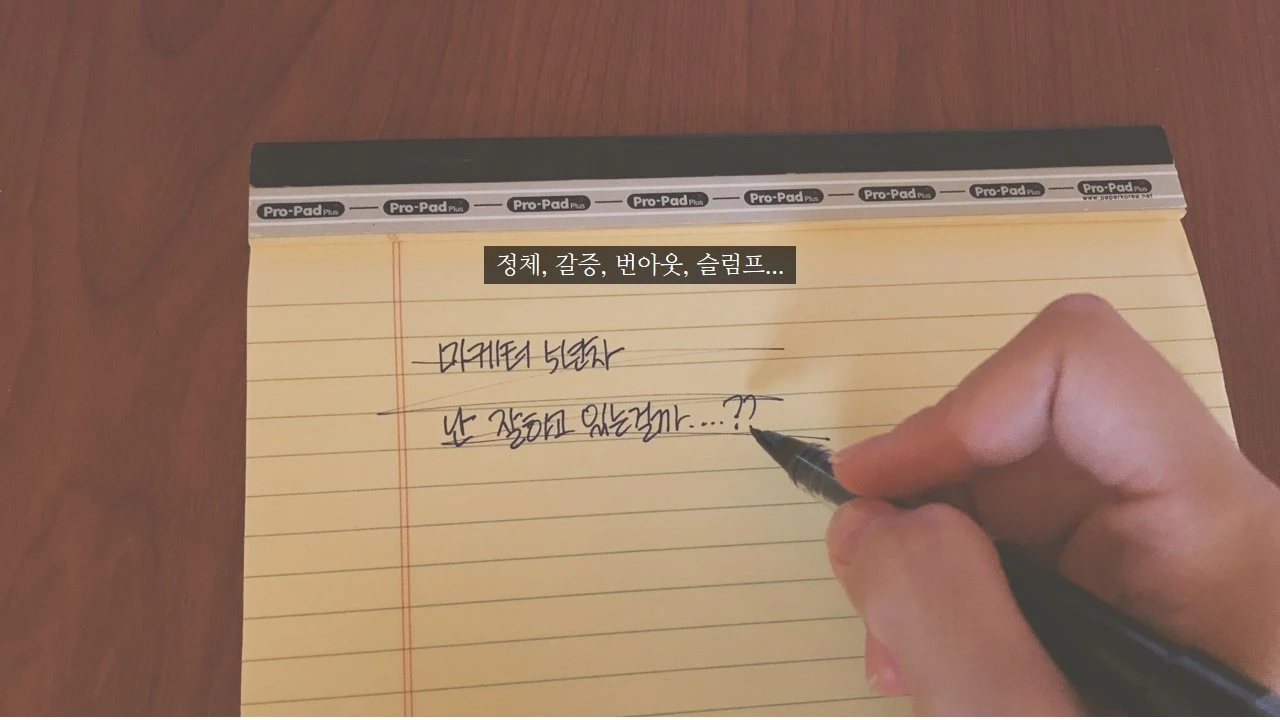 Pro-Pad Plus Pro-Pad Plus Pro-Pad Plus Pro-Pad Plus Pro-Pad Plus Pro-Pad Plus Pro-Pad Plus Pro-Pad Plus
www.paperkorea.net
정체, 갈증, 번아웃, 슬럼프...
마케터 5년차
난 잘하고 있는걸까....??